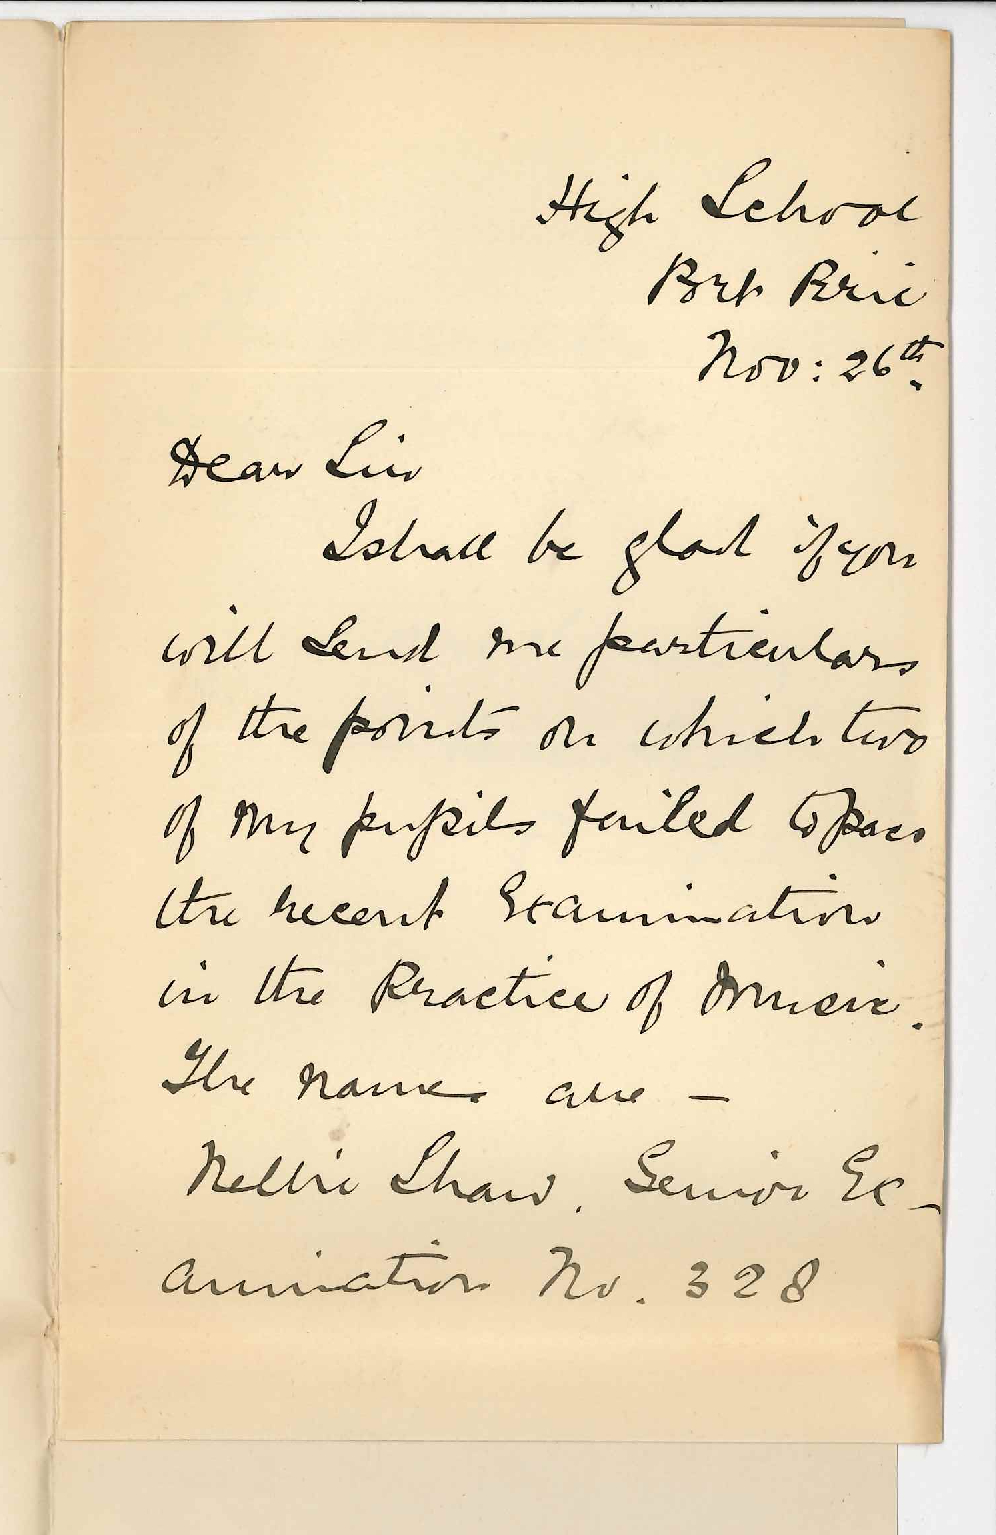 High School
Port Pirie
Nov: 26th.
Dear Sir
I shall be glad if you
will send me particulars
of the points on which two
of my pupils failed to pass
the recent Examination
in the Practice of Music.
The names are —
Nellie Shaw. Senior Ex-
amination No. 328